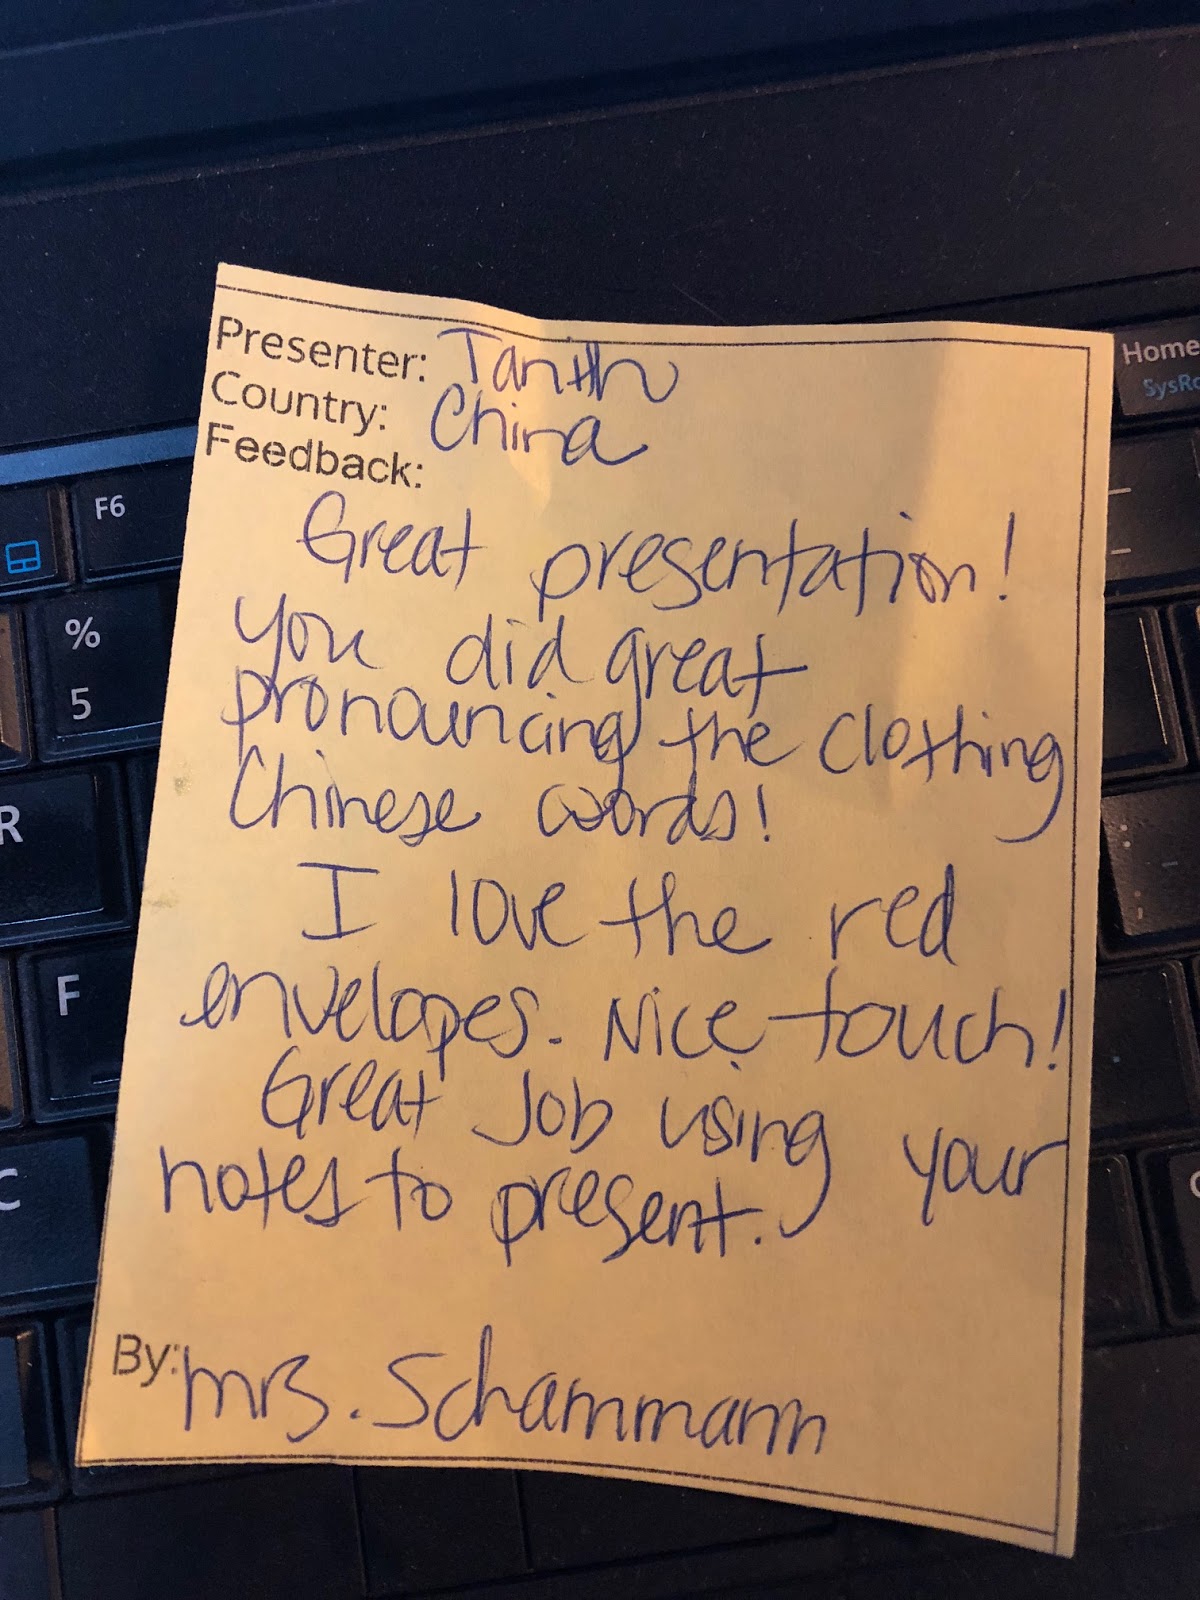 Presenter: Tanth
Country: China
Feedback:
Great presentation!
you did great
pronouncing the clothing
Chinese words!
I love the red
envelopes. Nice touch!
Great Job using your
notes to present.
By: Mrs. Schammann
Home
SysRq
F6
%
5
R
F
C